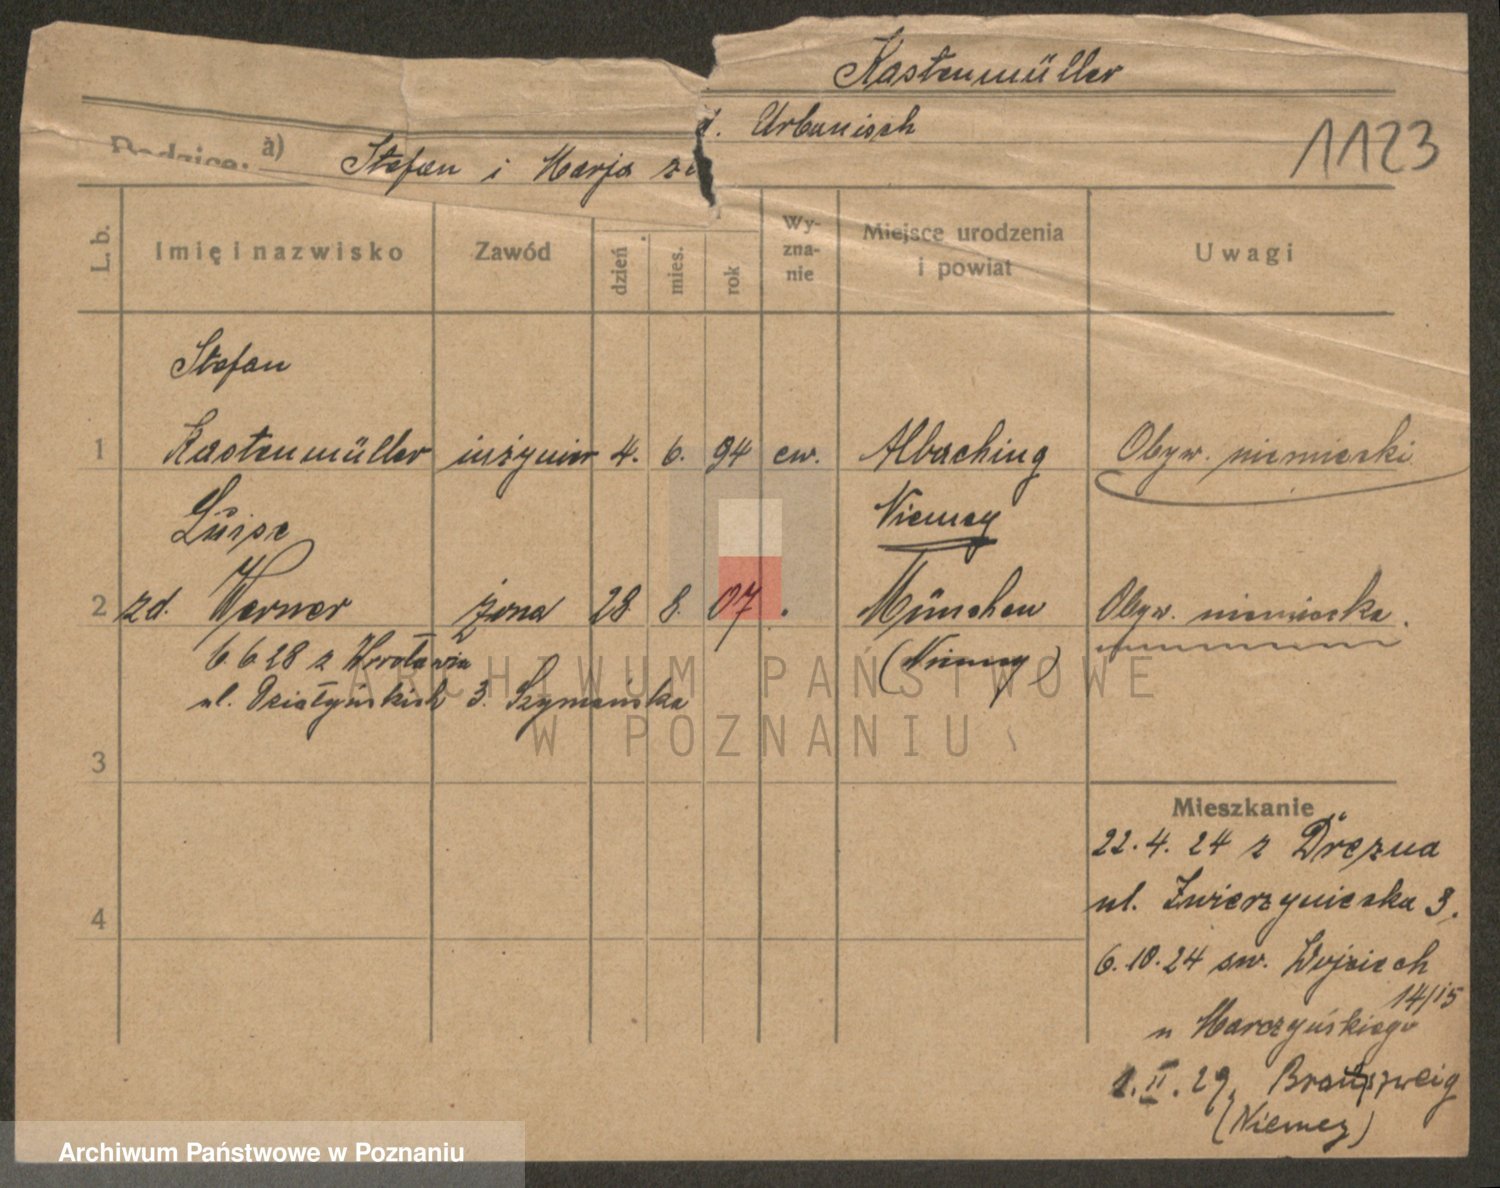 Kastenmüller
d. Urbanisch
1123
Rodzice: a) Stefan i Marja z
L. b.
Imię i nazwisko
Zawód
dzień
mies.
rok
Wy-
zna-
nie
Miejsce urodzenia
i powiat
Uwagi
Stefan
1 Kastenmüller inżynier 4. 6. 94 ew. Albaching Obyw. niemiecki
Luise Niemcy
2 zd. Werner żona 28 8. 07 . München Obyw. niemiecka.
6 6 28 z Wrocławia (Niemcy)
ul. Działyńskich 3. Szymańska
ARCHIWUM PAŃSTWOWE
W POZNANIU
3
Mieszkanie
22. 4. 24 z Drezna
ul. Zwierzyniecka 3.
4
6. 10. 24 św. Wojciech
14/15
u Marczyńskiego
1. II. 29. Braunszweig
(Niemcy)
Archiwum Państwowe w Poznaniu